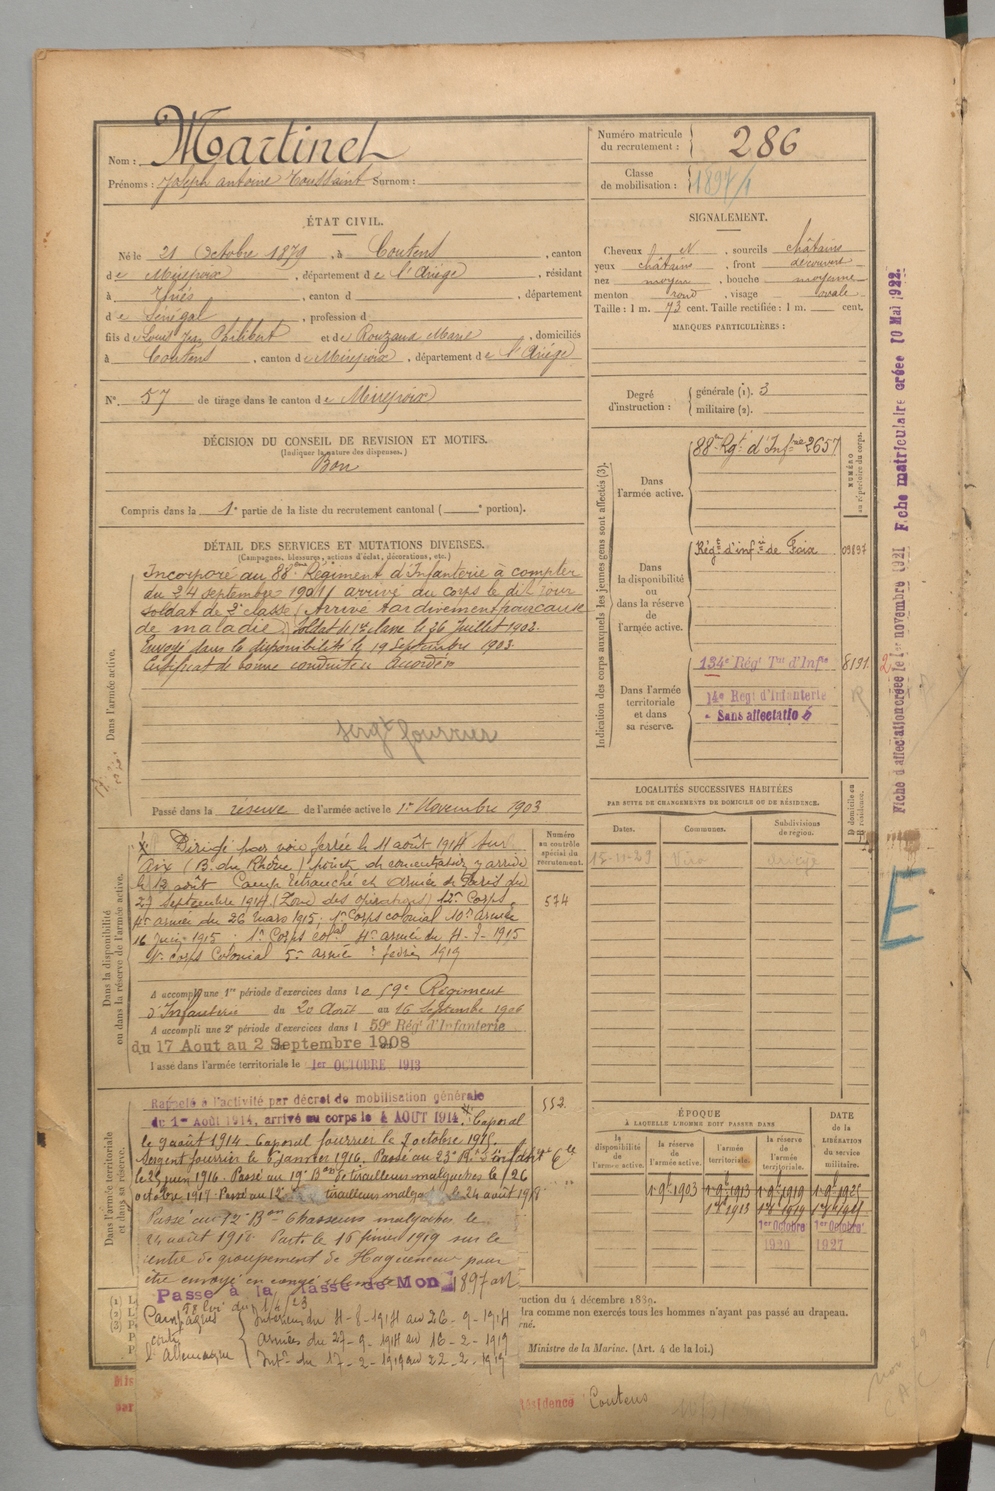 Nom : Martinet
Prénoms : Joseph Antoine Toussaint Surnom :
Numéro matricule du recrutement : 286
Classe de mobilisation : 1897/1
ÉTAT CIVIL.
Né le 21 Octobre 1879, à Coutens, canton
de Mirepoix, département de l'Ariège, résidant
à Thiès, canton d , département
de Sénégal, profession d
fils de Louis Jean Philibert et de Rouzaud Marie, domiciliés
à Coutens, canton de Mirepoix, département de l'Ariège
N° 57 de tirage dans le canton de Mirepoix
SIGNALEMENT.
Cheveux N, sourcils châtains
yeux châtains, front découvert
nez moyen, bouche moyenne
menton rond, visage ovale
Taille : 1 m. 73 cent. Taille rectifiée : 1 m. cent.
MARQUES PARTICULIÈRES :
Degré d'instruction : générale (1). 3
militaire (2).
DÉCISION DU CONSEIL DE REVISION ET MOTIFS.
(Indiquer la nature des dispenses.)
Bon
Compris dans la 1e partie de la liste du recrutement cantonal ( e portion).
DÉTAIL DES SERVICES ET MUTATIONS DIVERSES.
(Campagnes, blessures, actions d'éclat, décorations, etc.)
Dans l'armée active.
Incorporé au 88ème Régiment d'Infanterie à compter
du 24 septembre 1901 arrivé au corps le dit jour
soldat de 2e classe (Arrivé tardivement pour cause
de maladie) Soldat de 1re classe le 26 Juillet 1902.
Envoyé dans la disponibilité le 19 Septembre 1903.
Certificat de bonne conduite Accordé
sergt fourrier
Passé dans la réserve de l'armée active le 1er Novembre 1903
Indication des corps auxquels les jeunes gens sont affectés (3).
NUMÉRO au répertoire du corps.
Dans l'armée active.
88e Rgt d'Infrie 2657
Dans la disponibilité ou dans la réserve de l'armée active.
Régt d'infie de Foix 09897
Dans l'armée territoriale et dans sa réserve.
134e Régt Tal d'Infie 8131
14e Régt d'Infanterie
Sans affectation
LOCALITÉS SUCCESSIVES HABITÉES
PAR SUITE DE CHANGEMENTS DE DOMICILE OU DE RÉSIDENCE.
Dates. Communes. Subdivisions de région. D domicile ou R résidence.
Ariège
Dans la disponibilité ou dans la réserve de l'armée active.
Numéro au contrôle spécial du recrutement.
574
Dirigé par voie ferrée le 11 août 1914 sur
Aix (B. du Rhône) point de concentration y arrivé
le 13 août Camp retranché et Armée de Paris du
27 septembre 1914 (Zone des opérations) 12e Corps
4e armée du 26 mars 1915. 1er Corps colonial 10e armée
16 Juin 1915. 1er Corps colal 4e armée du 4-7-1915
1er corps Colonial 5e armée février 1919
A accompli une 1re période d'exercices dans le 59e Régiment
d'Infanterie du 20 Août au 16 Septembre 1906
A accompli une 2e période d'exercices dans l 59e Régt d'Infanterie
du 17 Aout au 2 Septembre 1908
Passé dans l'armée territoriale le 1er OCTOBRE 1913
Dans l'armée territoriale et dans sa réserve.
552
Rappelé à l'activité par décret de mobilisation générale
du 1er Août 1914, arrivé au corps le 4 AOUT 1914. Caporal
le 9 août 1914. Caporal fourrier le 7 octobre 1915.
Sergent fourrier le 6 janvier 1916. Passé au 23e Rt d'infanterie Cle
le 25 juin 1916. Passé au 19e Bon de tirailleurs malgaches le 26
octobre 1917. Passé au 12e tirailleurs malga le 24 août 1918
Passé au 12e Bon Chasseurs malgaches le
24 août 1918. Parti le 16 février 1919 sur le
centre de groupement de Haguenau pour
être envoyé en congé
Passé à la classe de Mon 1897 art
58 loi du 1/4/23
Campagnes contre l'Allemagne
Intérieur du 4-8-1914 au 26-9-1914
Armées du 27-9-1914 au 16-2-1919
Intr du 17-2-1919 au 22-2-1919
ÉPOQUE
À LAQUELLE L'HOMME DOIT PASSER DANS
la disponibilité de l'armée active.
la réserve de l'armée active.
l'armée territoriale.
la réserve de l'armée territoriale.
DATE de la LIBÉRATION du service militaire.
1 9bre 1903 1 9bre 1913 1 9bre 1919 1 9bre 1925
1er Octobre 1920
1er Octobre 1927
uction du 4 décembre 1889.
dra comme non exercés tous les hommes n'ayant pas passé au drapeau.
Ministre de la Marine. (Art. 4 de la loi.)
résidence Coutens
Fiche d'affectation créée le 1er novembre 1921 Fiche matriculaire créée 10 Mai 1922.
E